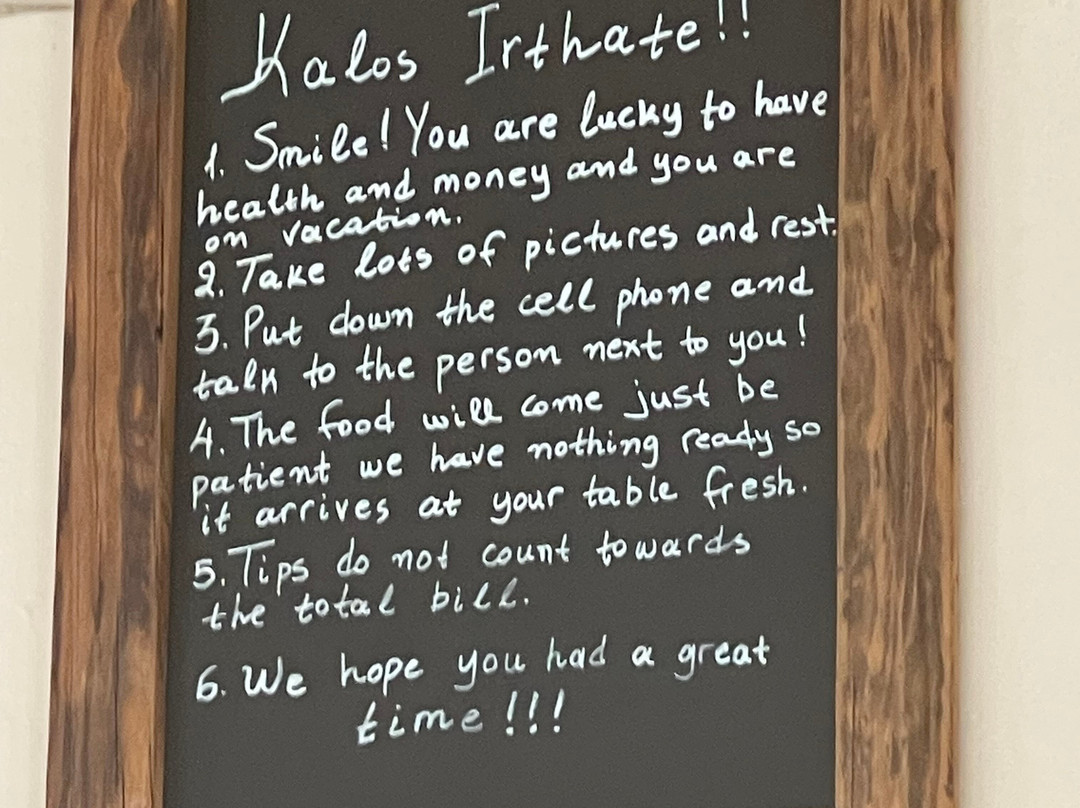 Kalos Irthate!!
1. Smile! You are lucky to have
health and money and you are
on vacation.
2. Take lots of pictures and rest.
3. Put down the cell phone and
talk to the person next to you!
4. The food will come just be
patient we have nothing ready so
it arrives at your table fresh.
5. Tips do not count towards
the total bill.
6. We hope you had a great
time!!!